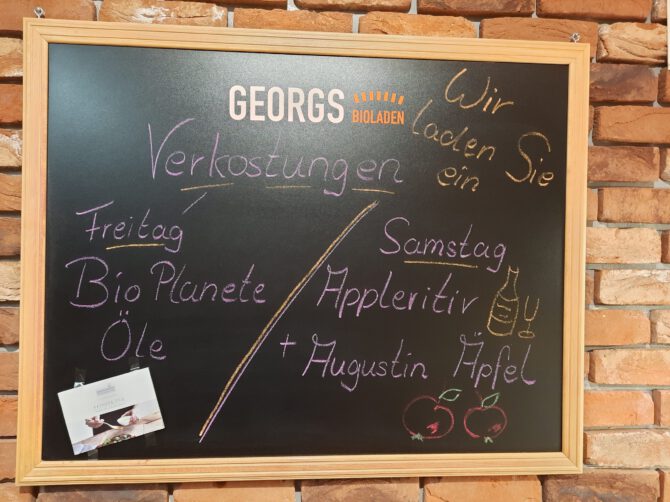 GEORGS BIOLADEN
Wir
laden Sie
ein
Verkostungen
Freitag
Bio Planete
Öle
Samstag
Appleritiv
+ Augustin Äpfel